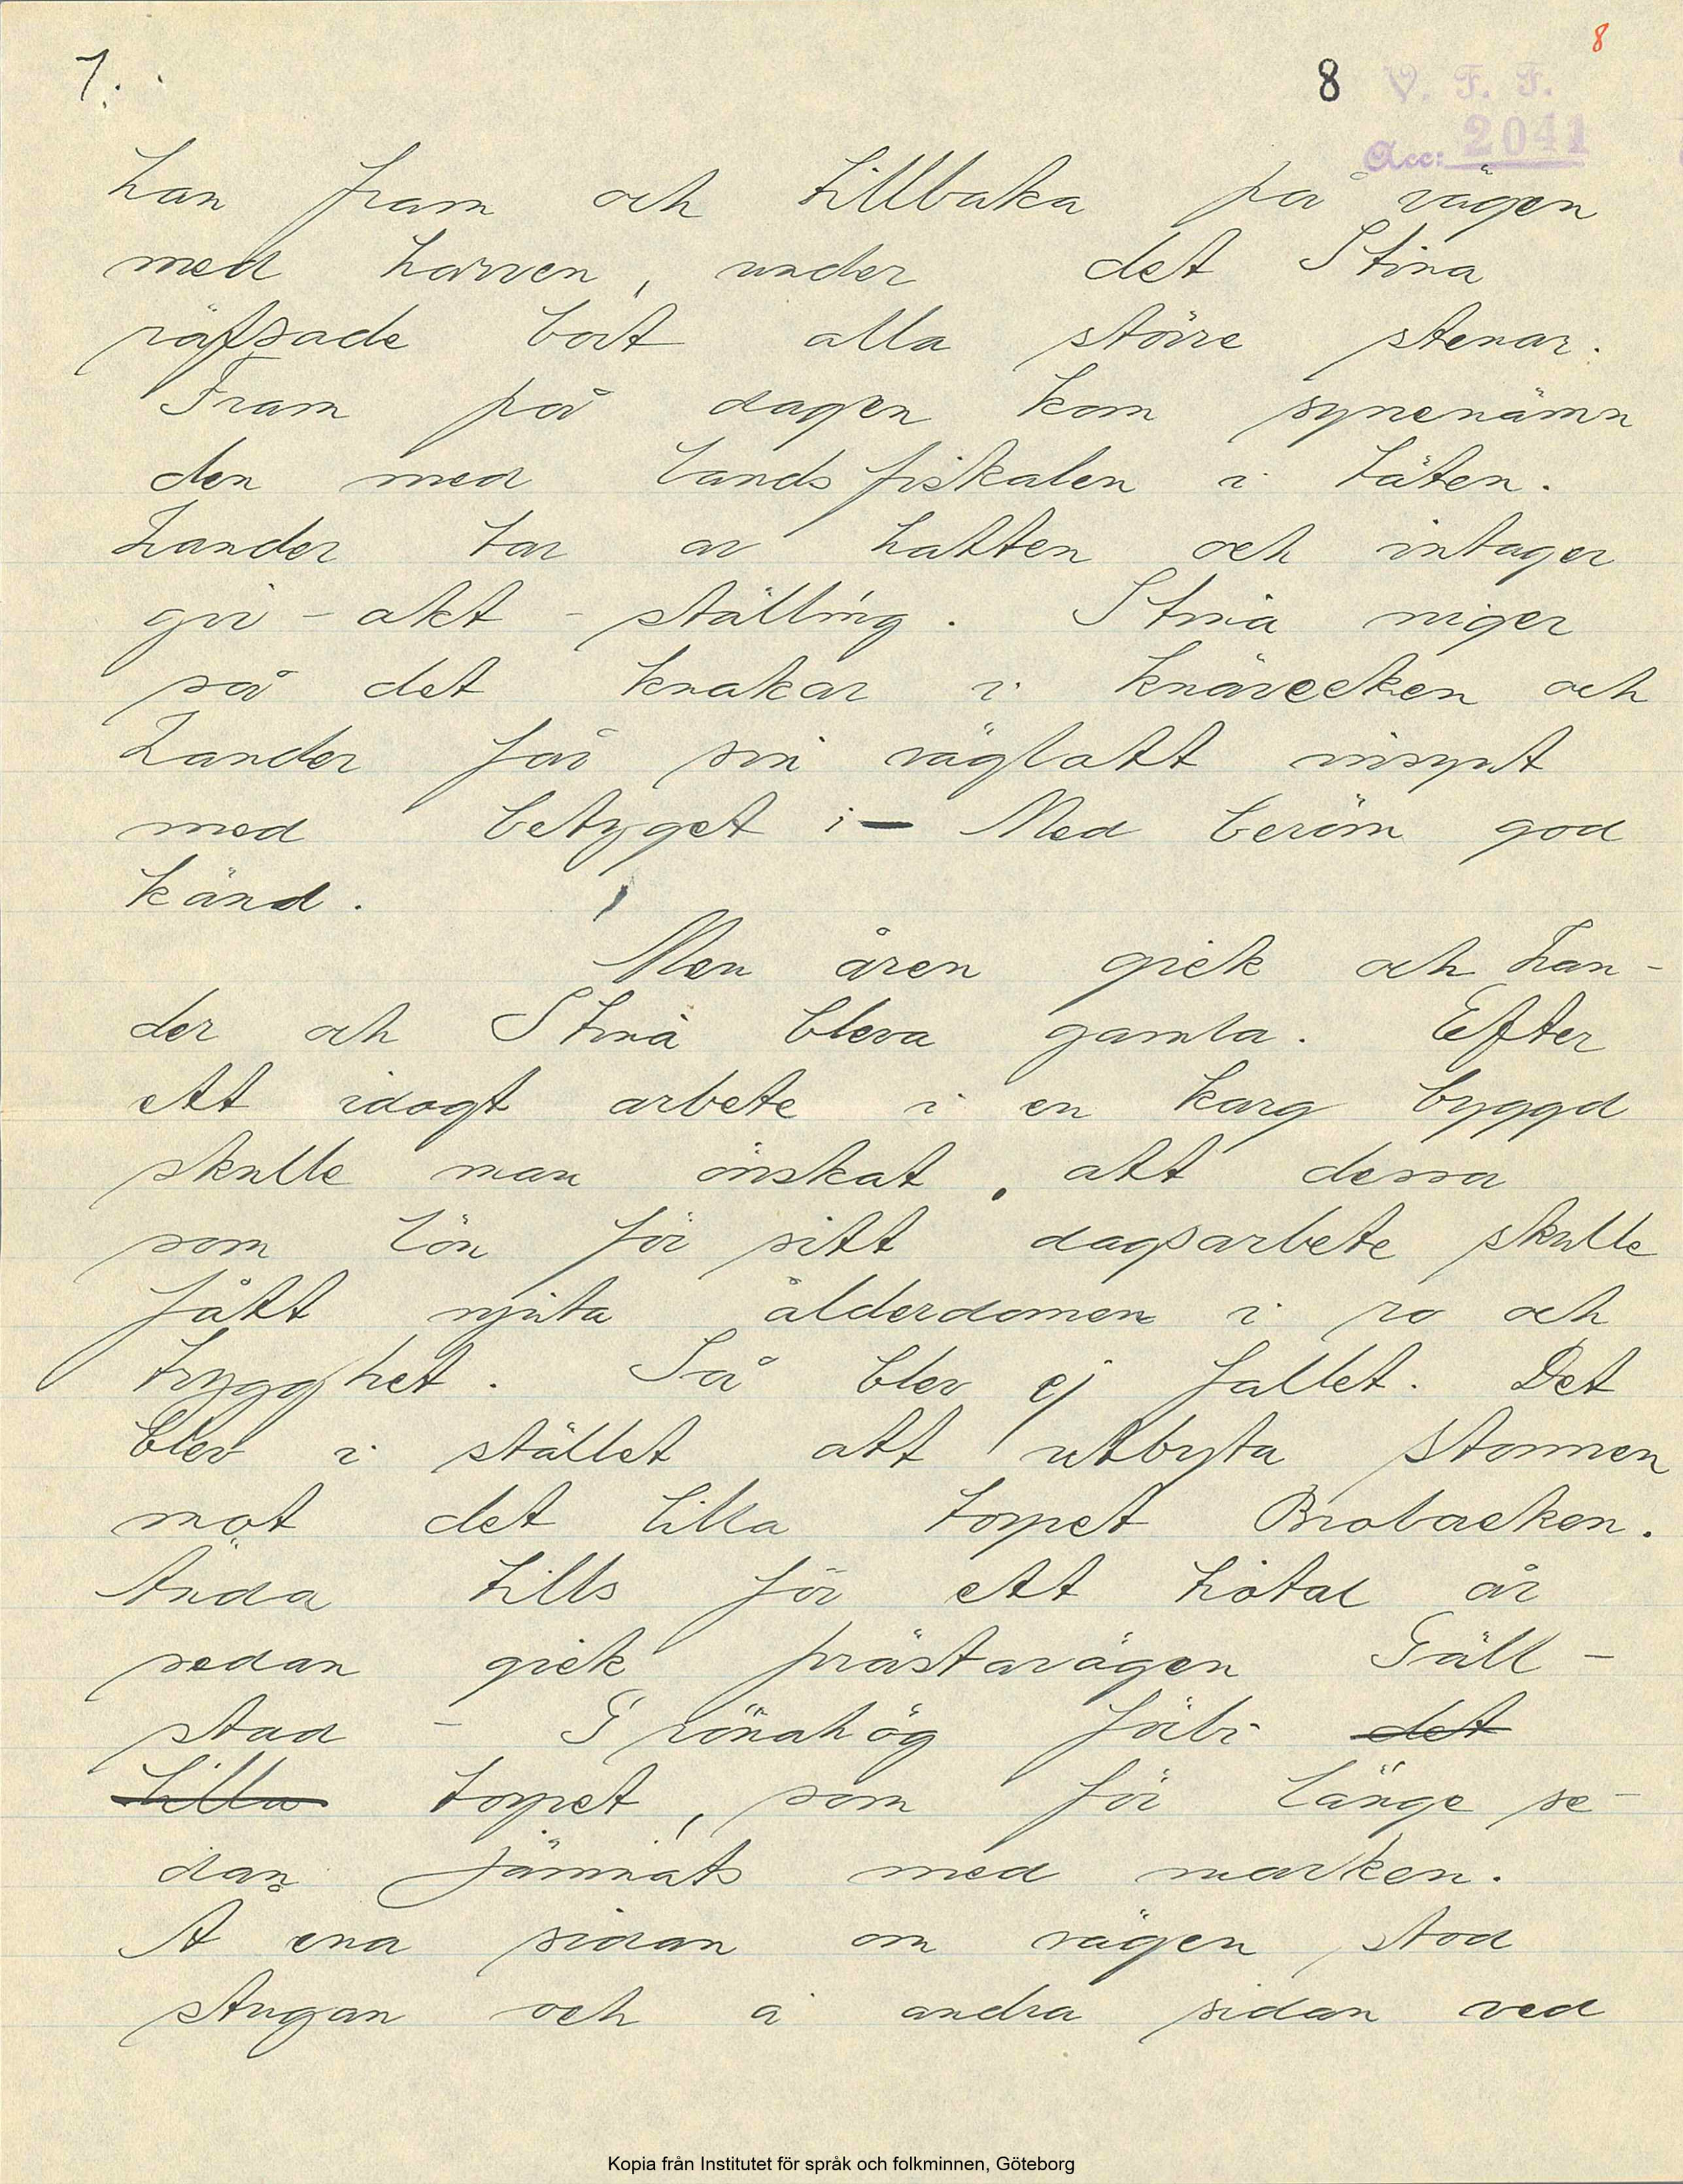 7.
8
8
V. F. F.
Acc: 2041
han fram och tillbaka på vägen
med harven, under det Stina
räfsade bort alla större stenar.
Fram på dagen kom synenämn
den med landsfiskalen i täten.
Zander tar av hatten och intager
giv-akt-ställing. Stina niger
så det knakar i knävecken och
Zander får sin väglatt insynt
med betyget :- Med beröm god
känd.
Men åren gick och Zan-
der och Stina bleva gamla. Efter
ett idogt arbete i en karg byggd
skulle man önskat, att dessa
som lön för sitt dagsarbete skulle
fått njuta ålderdomen i ro och
trygghet. Så blev ej fallet. Det
blev i stället att utbyta stommen
mot det lilla torpet Brobacken.
Ända tills för ett hotal år
sedan gick prästavägen Gäll-
stad - Grönahög förbi det
lilla torpet, som för länge se-
dan jämnats med marken.
Å ena sidan om vägen stod
stugan och å andra sidan ved
Kopia från Institutet för språk och folkminnen, Göteborg